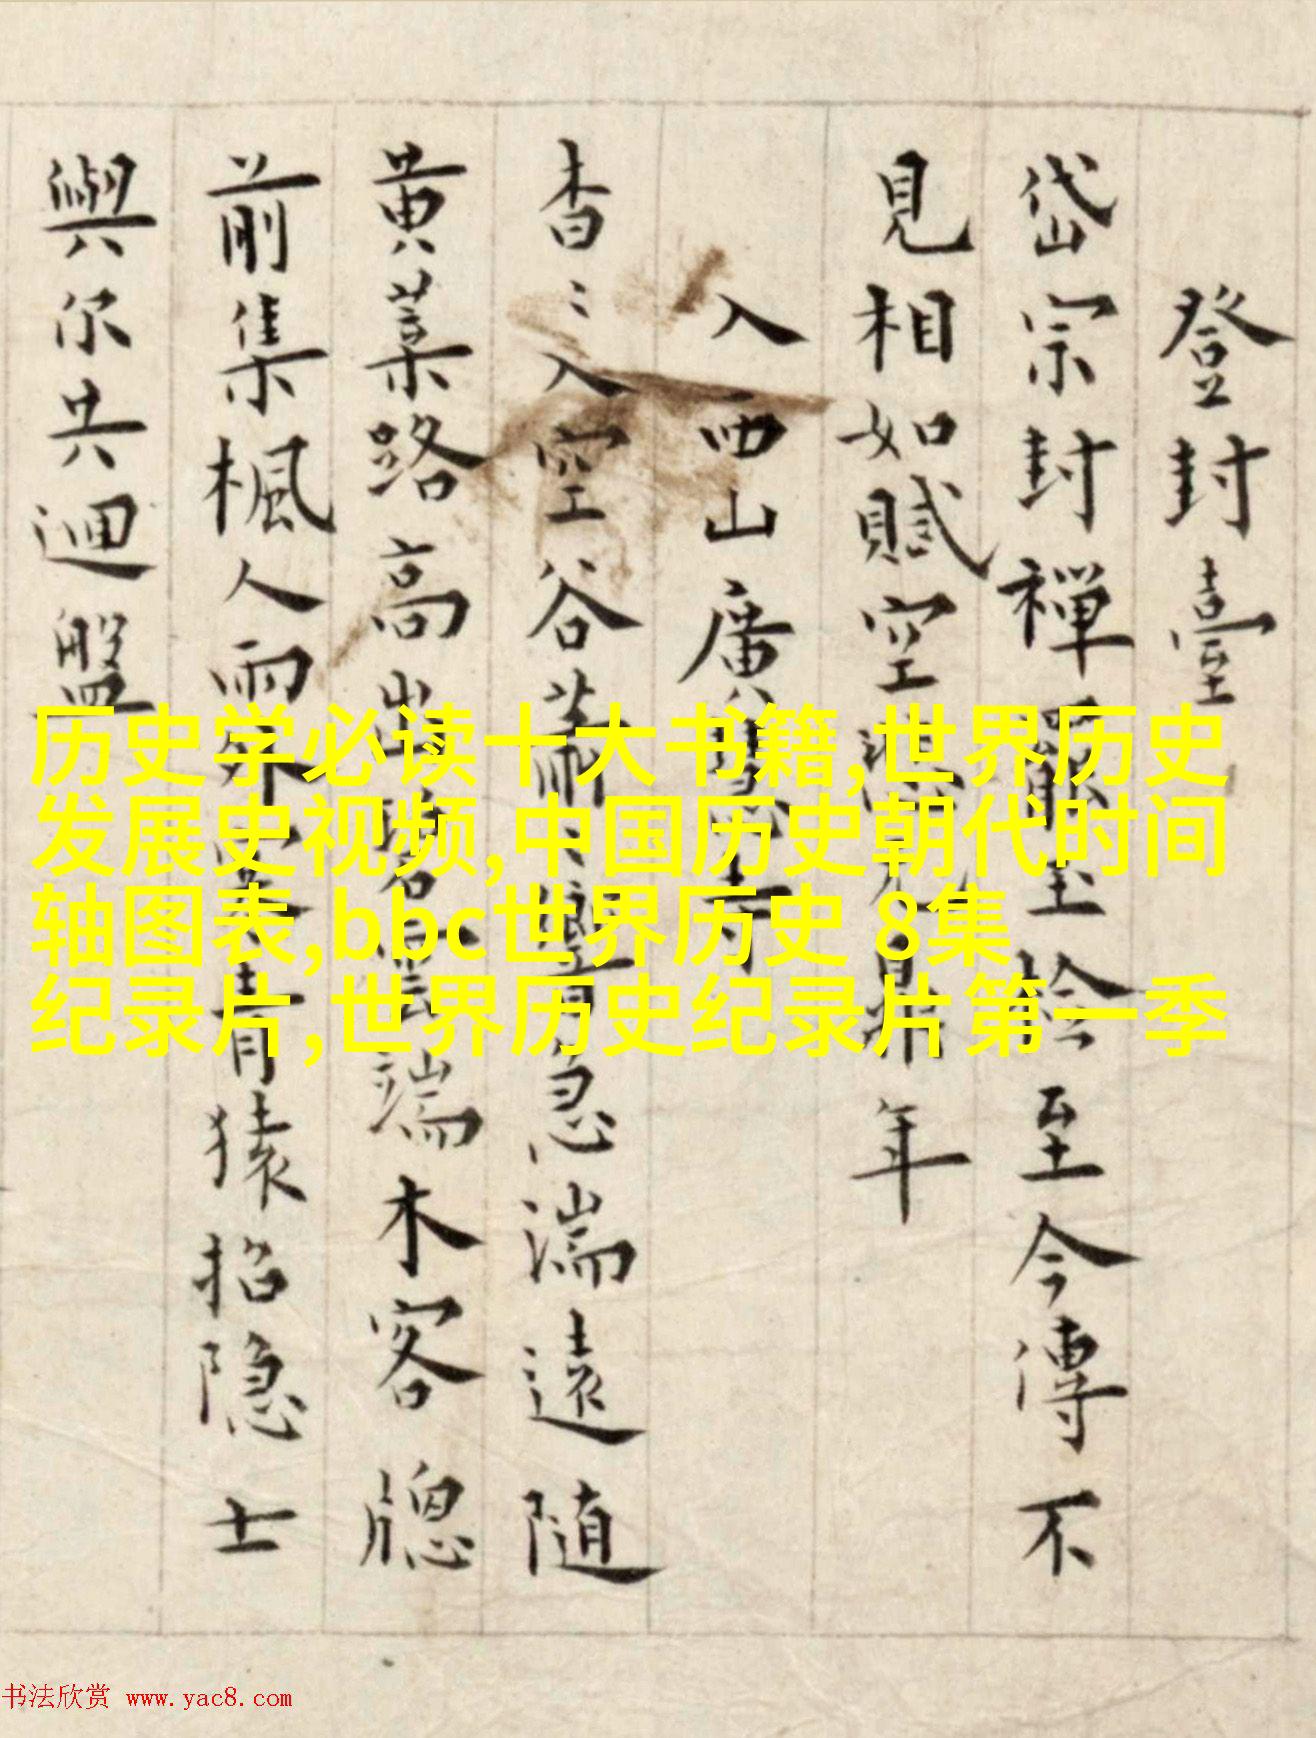 登封臺
岱宗封禪罷玉檢至今傳不
見相如賦空鼎年
入西山廣慧寺
杳〻入空谷蕭〻響急湍遠隨
黄葉路高出碧雲端木客牕
前集楓人雨外寒青猿招隱士
與尔共迴盤
历史学必读十大书籍,世界历史
发展史视频,中国历史朝代时间
轴图表,bbc世界历史 8集
纪录片,世界历史纪录片第一季
书法欣赏 www.yac8.com